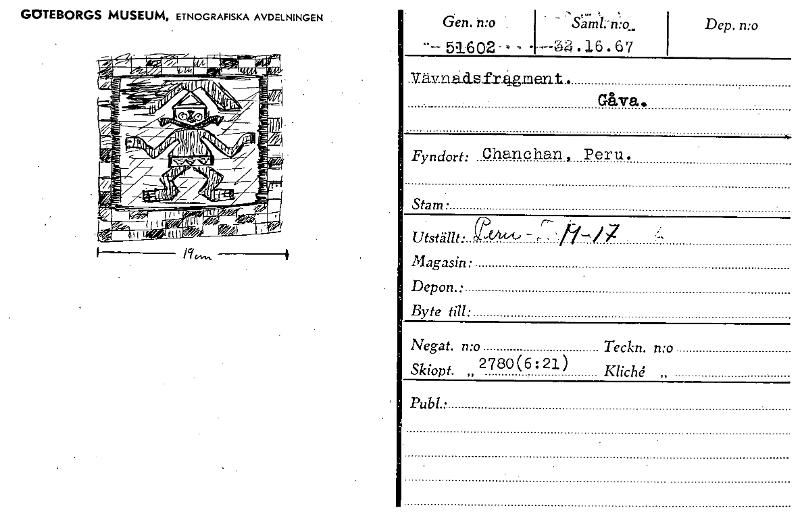 GÖTEBORGS MUSEUM, ETNOGRAFISKA AVDELNINGEN
19cm
Gen. n:o Saml. n:o Dep. n:o
51602 32.16.67
Vävnadsfragment.
Gåva.
Fyndort: Chanchan, Peru.
Stam:
Utställt: Peru - M-17
Magasin:
Depon.:
Byte till:
Negat. n:o Teckn. n:o
Skiopt. „ 2780(6:21) Kliché „
Publ.: